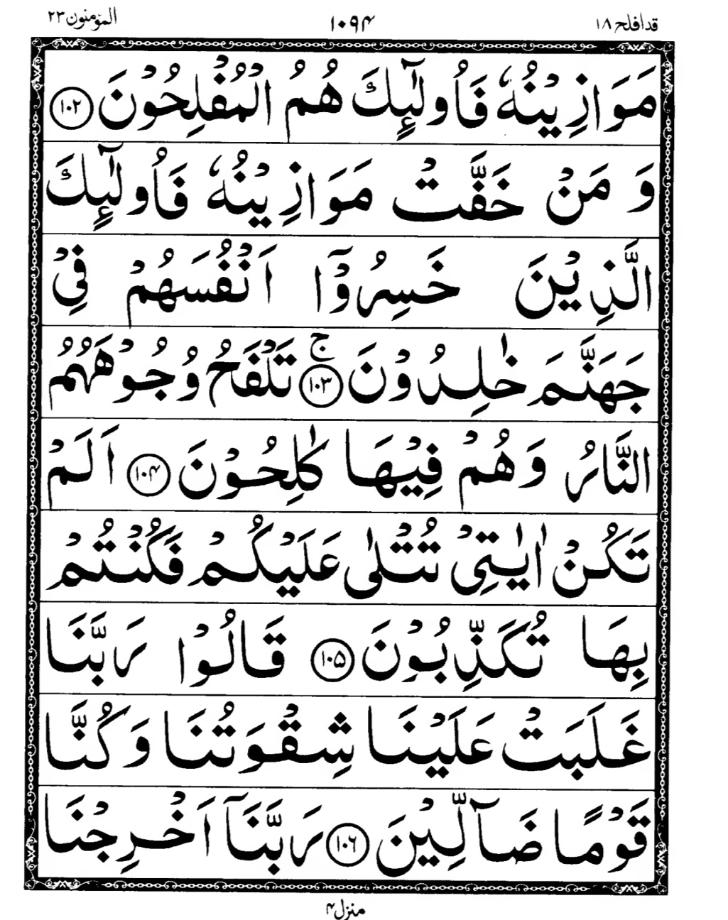 قد افلح ۱۸
۱۰۹۴
المؤمنون ۲۳
مَوَازِيْنُهٗ فَاُولٰٓئِكَ هُمُ الْمُفْلِحُوْنَ ﴿۱۰۲﴾
وَ مَنْ خَفَّتْ مَوَازِيْنُهٗ فَاُولٰٓئِكَ
الَّذِيْنَ خَسِرُوْۤا اَنْفُسَهُمْ فِيْ
جَهَنَّمَ خٰلِدُوْنَ ﴿۱۰۳﴾ۚ تَلْفَحُ وُجُوْهَهُمُ
النَّارُ وَهُمْ فِيْهَا كٰلِحُوْنَ ﴿۱۰۴﴾ اَلَمْ
تَكُنْ اٰيٰتِيْ تُتْلٰى عَلَيْكُمْ فَكُنْتُمْ
بِهَا تُكَذِّبُوْنَ ﴿۱۰۵﴾ قَالُوْا رَبَّنَا
غَلَبَتْ عَلَيْنَا شِقْوَتُنَا وَكُنَّا
قَوْمًا ضَآلِّيْنَ ﴿۱۰۶﴾ رَبَّنَاۤ اَخْرِجْنَا
منزل ۴